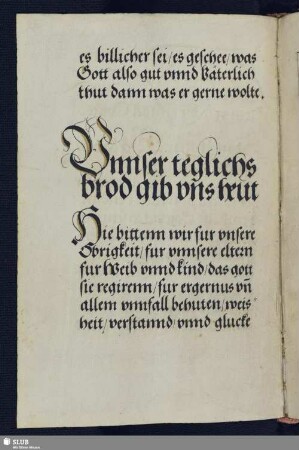 es billicher sei/ es geschee/ was
Gott also gut vnnd Väterlich
thut dann was er gerne wolte.
Vnnser teglichs
brod gib vns heut
Hie bittenn wir fur vnsere
Obrigkeit/ fur vnnsere eltern
fur Weib vnnd kind/ das gott
sie regirenn/ fur ergernus vn̄
allem vnnfall behuten/ weis
heit/ verstannd/ vnnd glucke
SLUB
Wir führen Wissen.